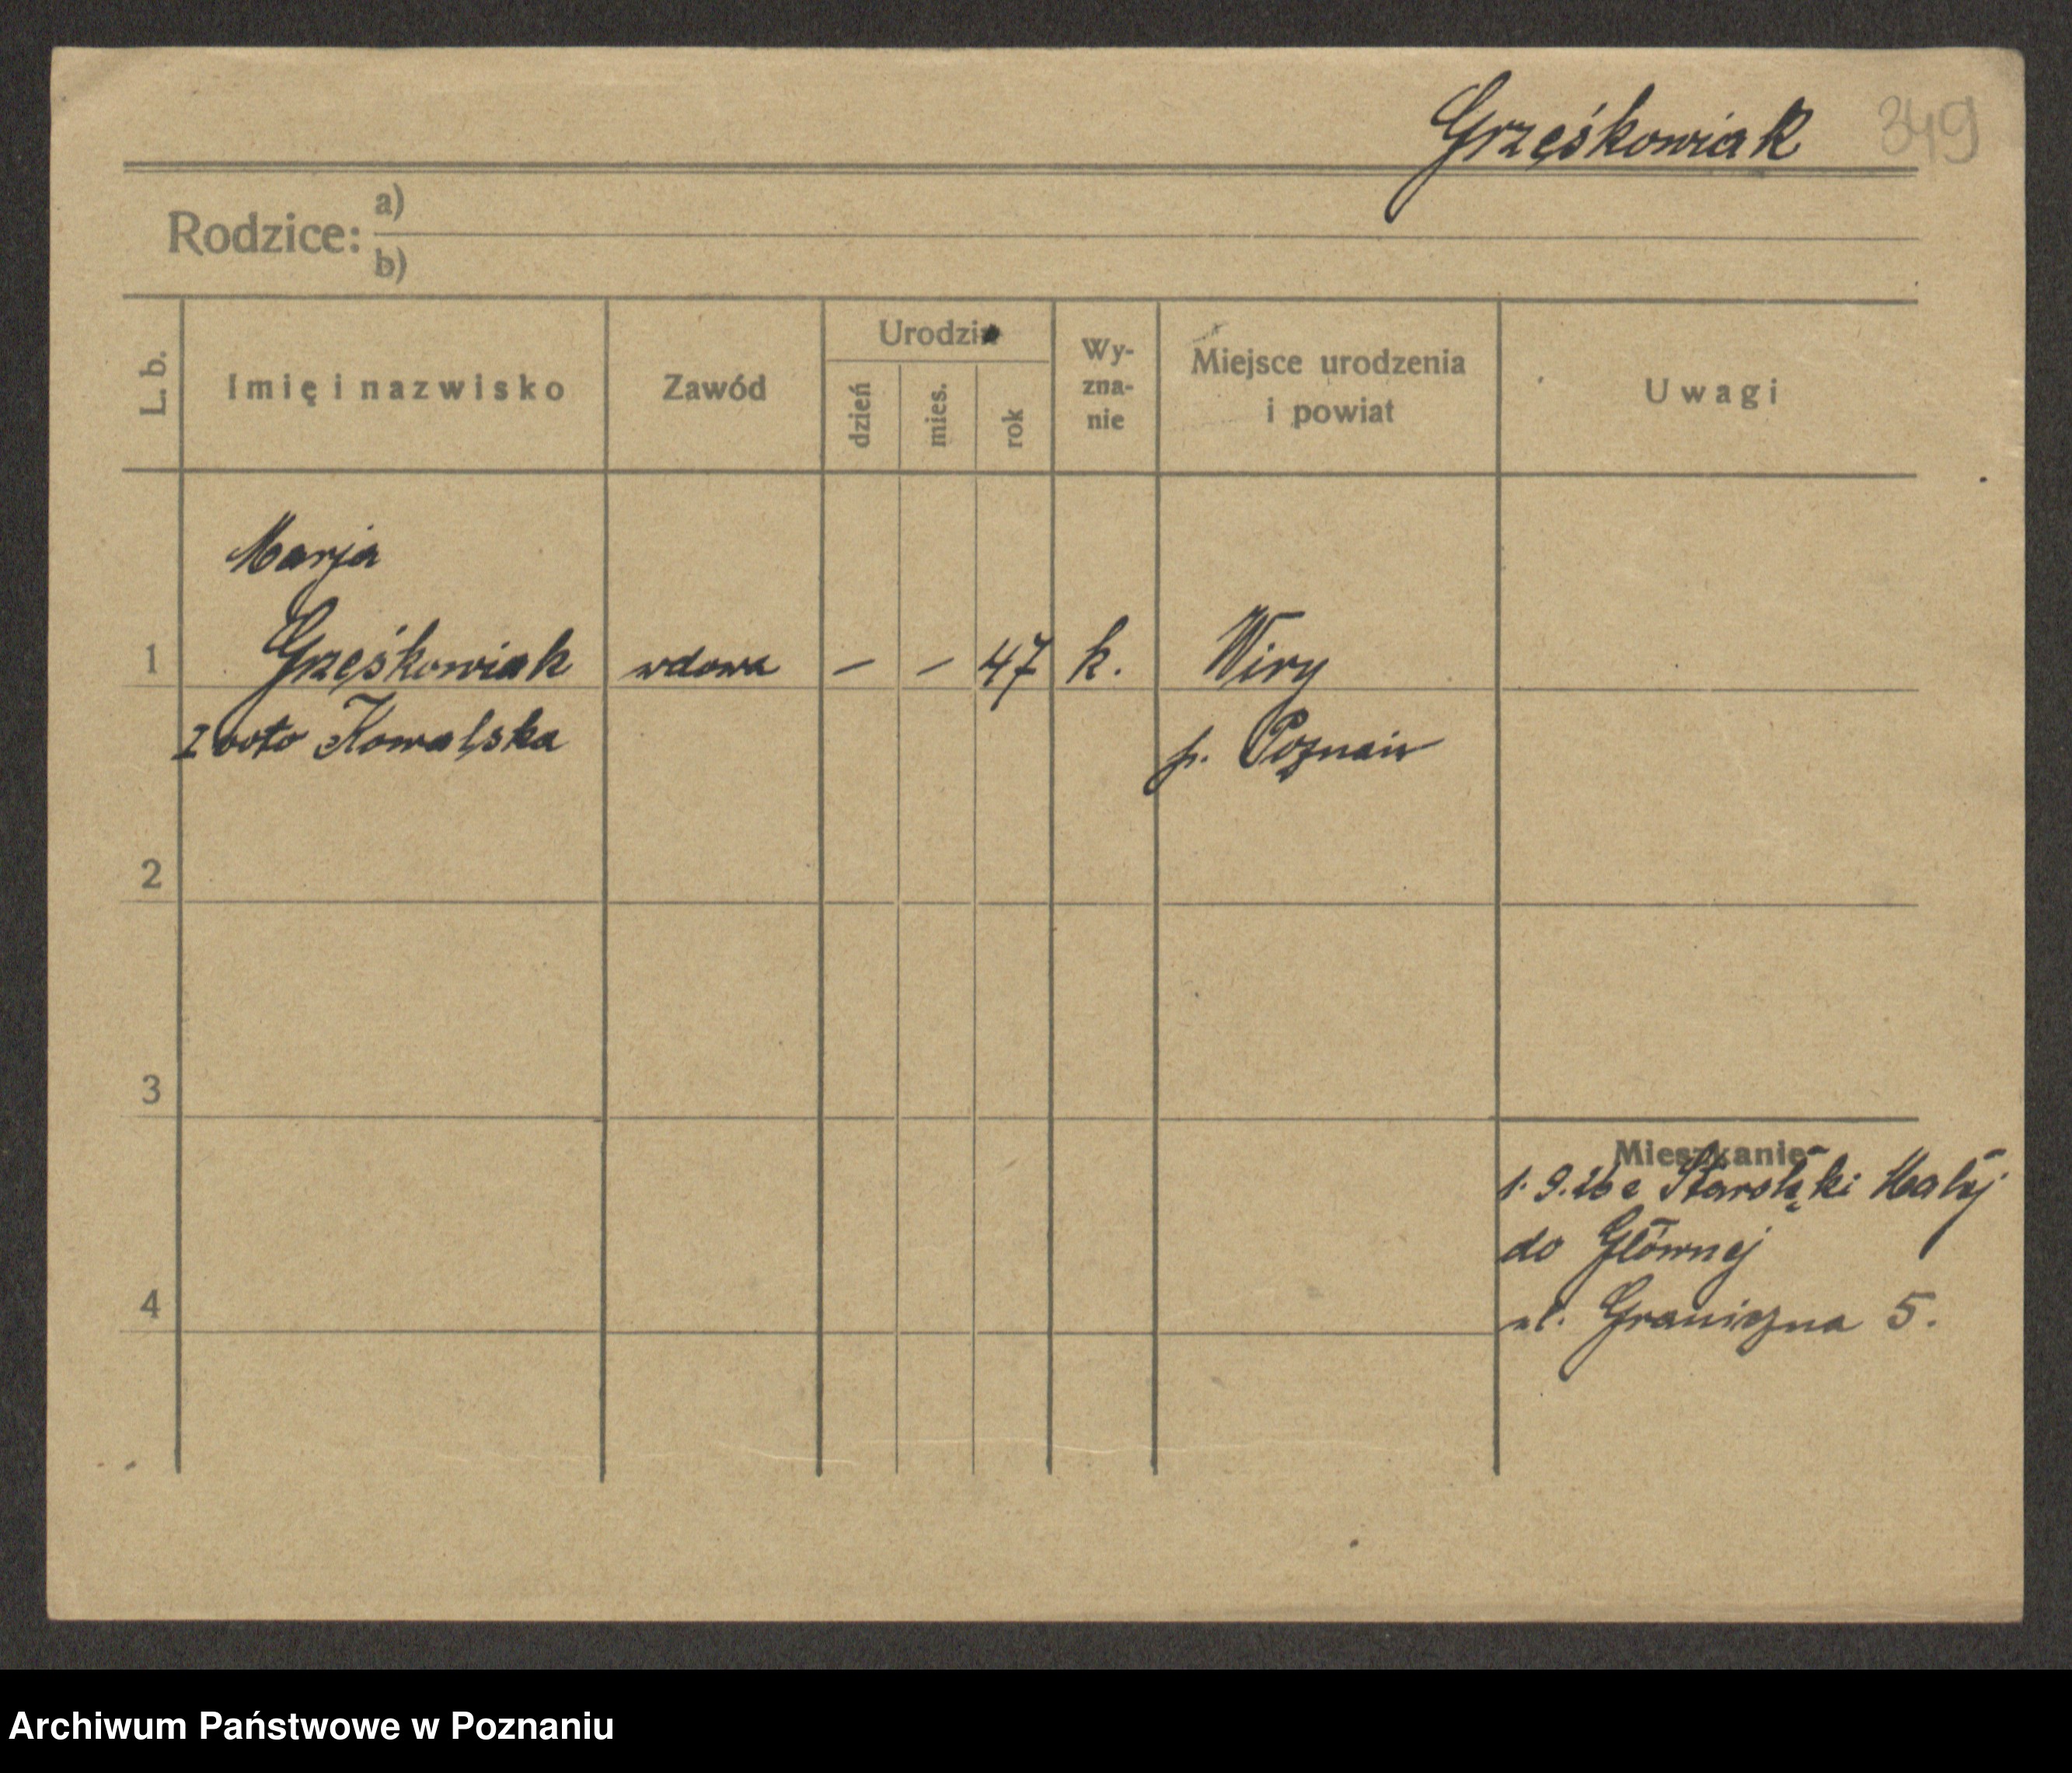 Grześkowiak 349
Rodzice: a)
b)
L. b.
Imię i nazwisko
Zawód
Urodzin
dzień
mies.
rok
Wy-
zna-
nie
Miejsce urodzenia
i powiat
Uwagi
Marja
1 Grześkowiak wdowa – – 47 k. Wiry
I voto Kowalska p. Poznań
2
3
Mieszkanie
1.9.26 z Starołęki Małej
do Głównej
4
ul. Graniczna 5.
Archiwum Państwowe w Poznaniu